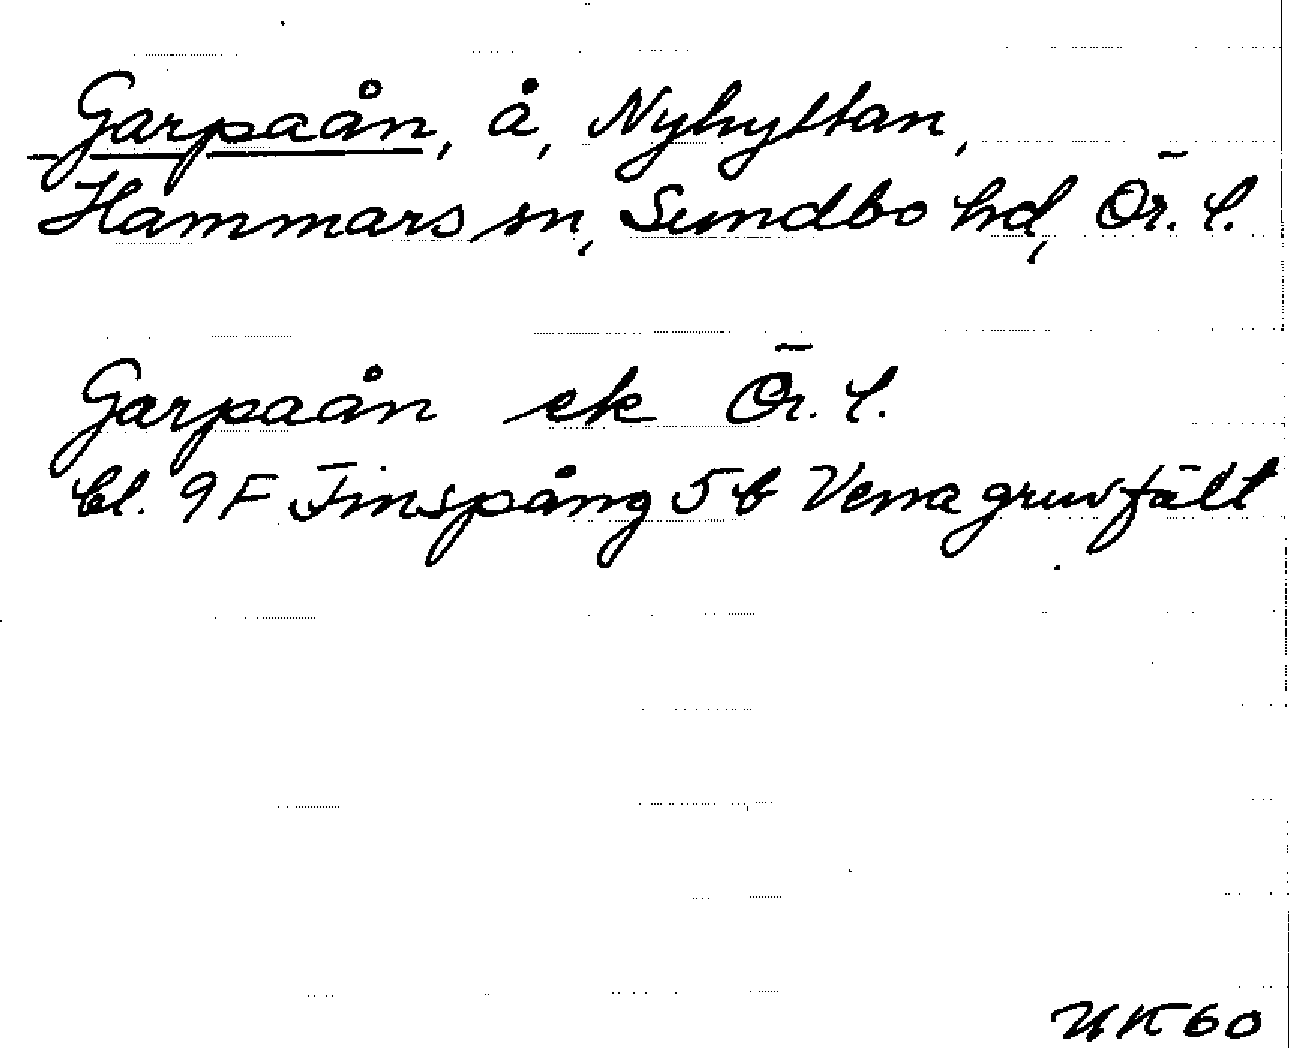 Garpaån, å, Nyhyttan,
Hammars sn, Sundbo hd, Ör. l.
Garpaån ek Ör. l.
bl. 9F Finspång 5b Vena gruvfält
UK60